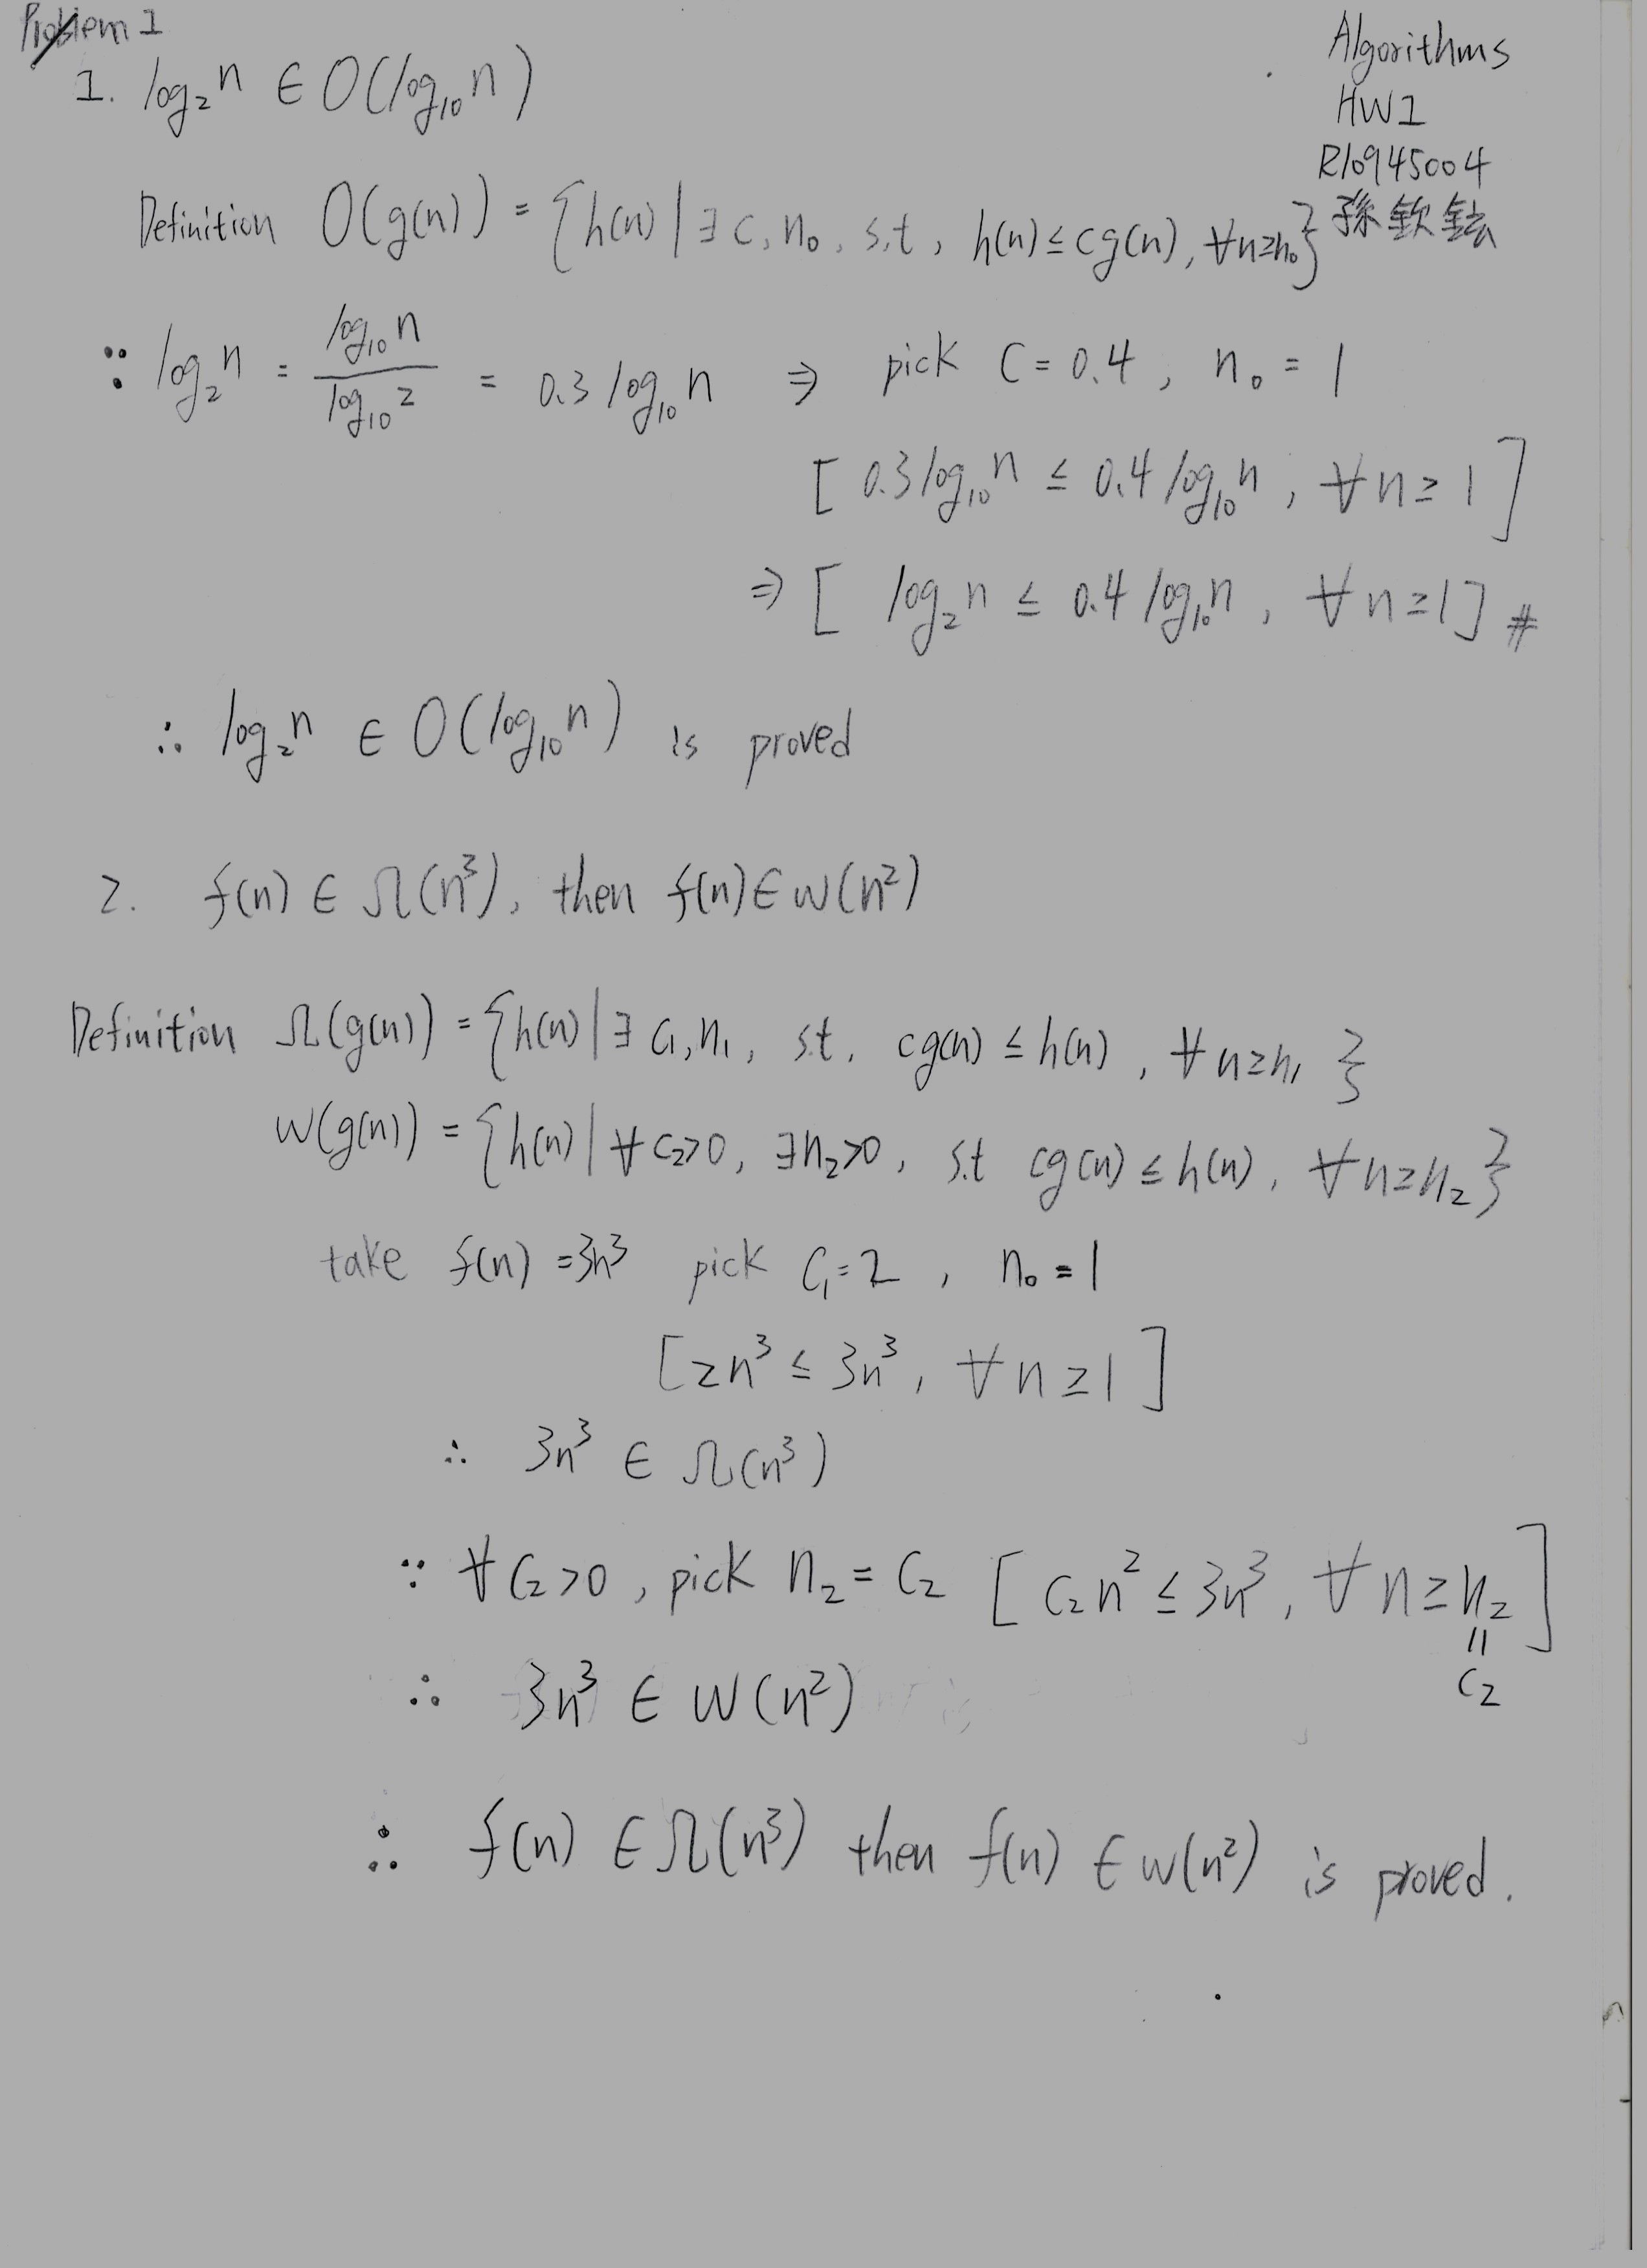 Problem 1
Algorithms
HW1
R10945004
孫欽鉉
1. log₂n ∈ O(log₁₀n)
Definition O(g(n)) = {h(n) | ∃ c, n₀, s.t, h(n) ≤ cg(n), ∀n≥n₀}
∵ log₂n = log₁₀n / log₁₀2 = 0.3 log₁₀n ⇒ pick C = 0.4, n₀ = 1
[0.3 log₁₀n ≤ 0.4 log₁₀n, ∀n ≥ 1]
⇒ [log₂n ≤ 0.4 log₁₀n, ∀n ≥ 1] #
∴ log₂n ∈ O(log₁₀n) is proved
2. f(n) ∈ Ω(n³), then f(n) ∈ w(n²)
Definition Ω(g(n)) = {h(n) | ∃ c₁, n₁, s.t. cg(n) ≤ h(n), ∀n≥n₁}
w(g(n)) = {h(n) | ∀c₂>0, ∃n₂>0, s.t cg(n) ≤ h(n), ∀n≥n₂}
take f(n) = 3n³ pick C₁ = 2, n₀ = 1
[2n³ ≤ 3n³, ∀n ≥ 1]
∴ 3n³ ∈ Ω(n³)
∵ ∀C₂>0, pick n₂ = C₂ [C₂n² ≤ 3n³, ∀n ≥ n₂]
=
C₂
∴ 3n³ ∈ w(n²)
∴ f(n) ∈ Ω(n³) then f(n) ∈ w(n²) is proved.